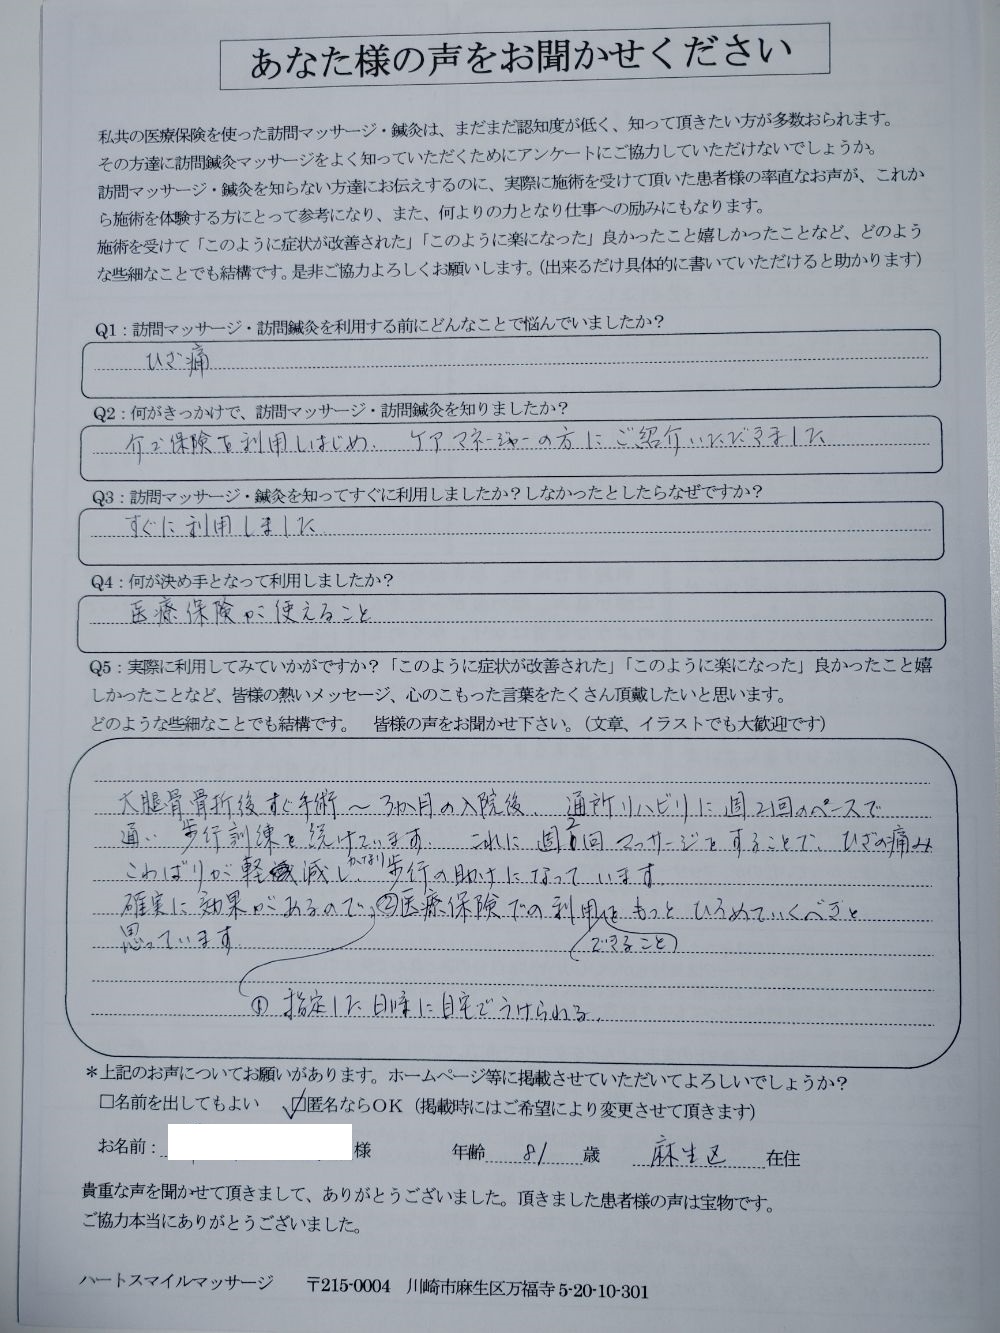 あなた様の声をお聞かせください
私共の医療保険を使った訪問マッサージ・鍼灸は、まだまだ認知度が低く、知って頂きたい方が多数おられます。
その方達に訪問鍼灸マッサージをよく知っていただくためにアンケートにご協力していただけないでしょうか。
訪問マッサージ・鍼灸を知らない方達にお伝えするのに、実際に施術を受けて頂いた患者様の率直なお声が、これか
ら施術を体験する方にとって参考になり、また、何よりの力となり仕事への励みにもなります。
施術を受けて「このように症状が改善された」「このように楽になった」良かったこと嬉しかったことなど、どのよう
な些細なことでも結構です。是非ご協力よろしくお願いします。（出来るだけ具体的に書いていただけると助かります）
Q1：訪問マッサージ・訪問鍼灸を利用する前にどんなことで悩んでいましたか？
ひざ痛
Q2：何がきっかけで、訪問マッサージ・訪問鍼灸を知りましたか？
介ゴ保険を利用しはじめ、ケアマネージャーの方にご紹介いただきました
Q3：訪問マッサージ・鍼灸を知ってすぐに利用しましたか？しなかったとしたらなぜですか？
すぐに利用しました
Q4：何が決め手となって利用しましたか？
医療保険が使えること
Q5：実際に利用してみていかがですか？「このように症状が改善された」「このように楽になった」良かったこと嬉
しかったことなど、皆様の熱いメッセージ、心のこもった言葉をたくさん頂戴したいと思います。
どのような些細なことでも結構です。　皆様の声をお聞かせ下さい。（文章、イラストでも大歓迎です）
大腿骨骨折後すぐ手術～3か月の入院後、通所リハビリに週2回のペースで
通い歩行訓練を続けています。これに週2回マッサージをすることで、ひざの痛み
こわばりが軽減し、かなり歩行の助けになっています。
確実に効果があるので、②医療保険での利用をもっとひろめていくべきと
思っています。
（できること）
① 指定した日時に自宅でうけられる。
＊上記のお声についてお願いがあります。ホームページ等に掲載させていただいてよろしいでしょうか？
□名前を出してもよい　☑匿名ならOK（掲載時にはご希望により変更させて頂きます）
お名前：様　年齢 81 歳　麻生区 在住
貴重な声を聞かせて頂きまして、ありがとうございました。頂きました患者様の声は宝物です。
ご協力本当にありがとうございました。
ハートスマイルマッサージ　〒215-0004　川崎市麻生区万福寺 5-20-10-301